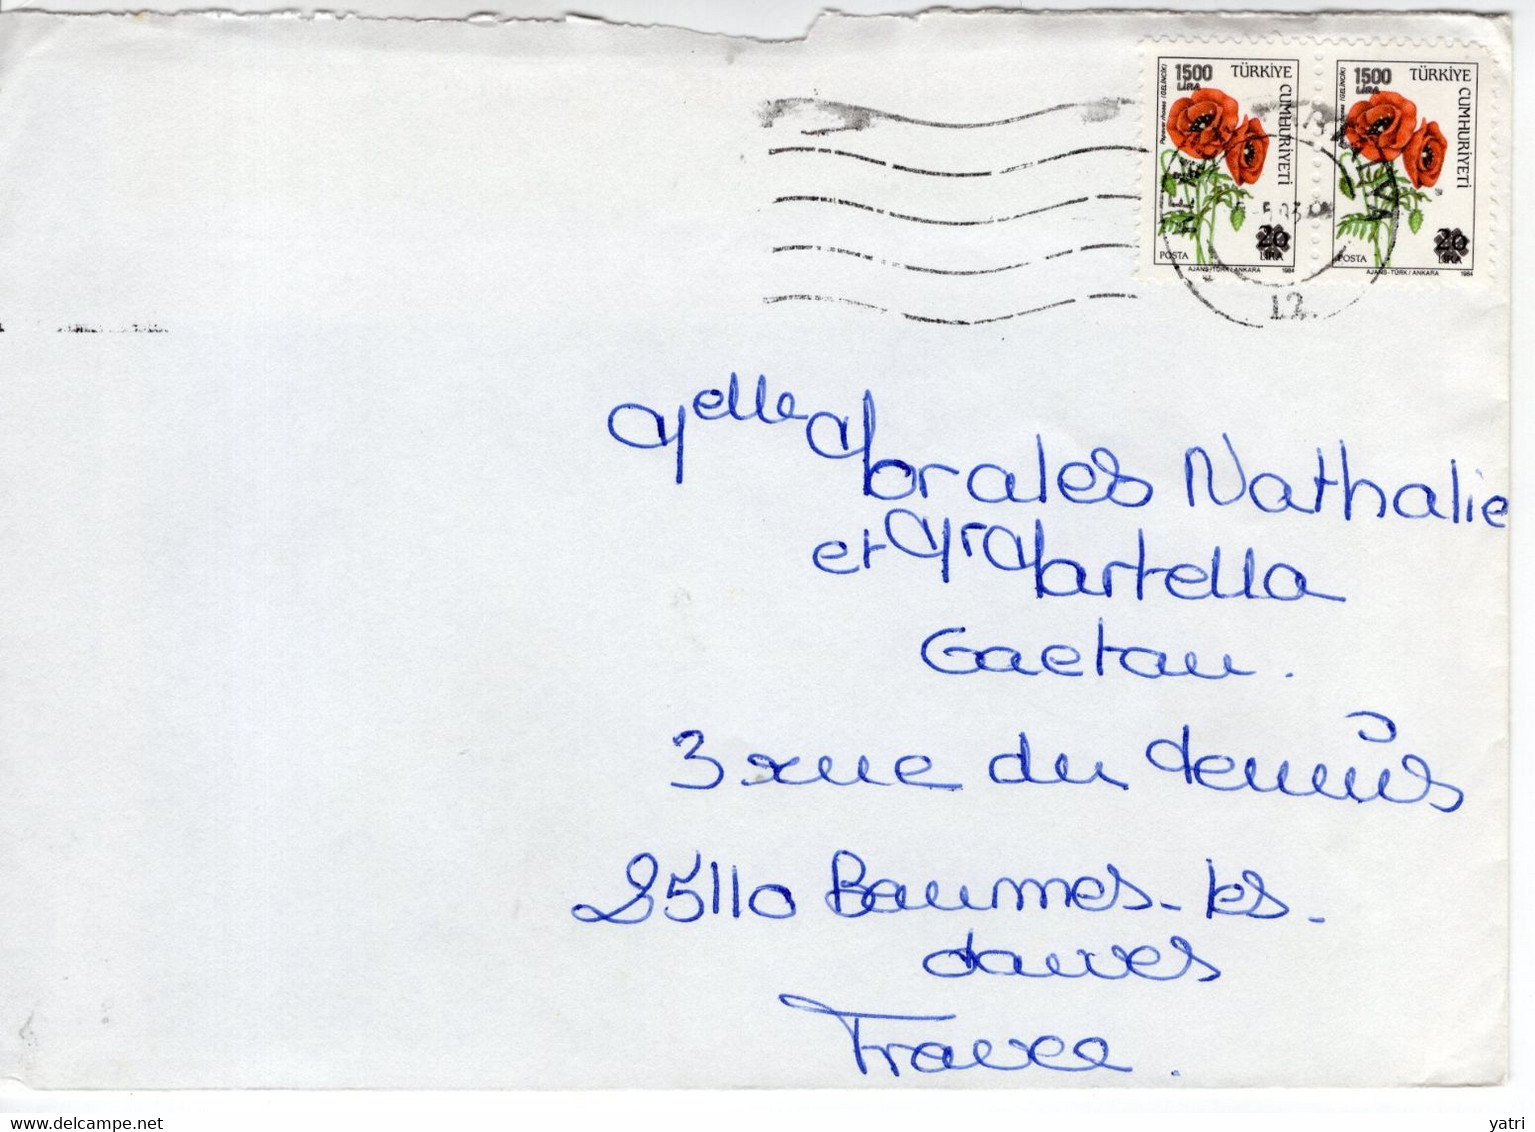 1500 LİRA TÜRKİYE CUMHURİYETİ
Papaver rhoeas (GELİNCİK)
20 LİRA
POSTA
AJANS-TÜRK / ANKARA 1984
1500 LİRA TÜRKİYE CUMHURİYETİ
20 LİRA
POSTA
AJANS-TÜRK / ANKARA 1984
12
Melle Morales Nathalie
et Mr Martella
Gaetan.
3 rue du
25110 Baumes-les-
dames
France.
delcampe.net
yatri